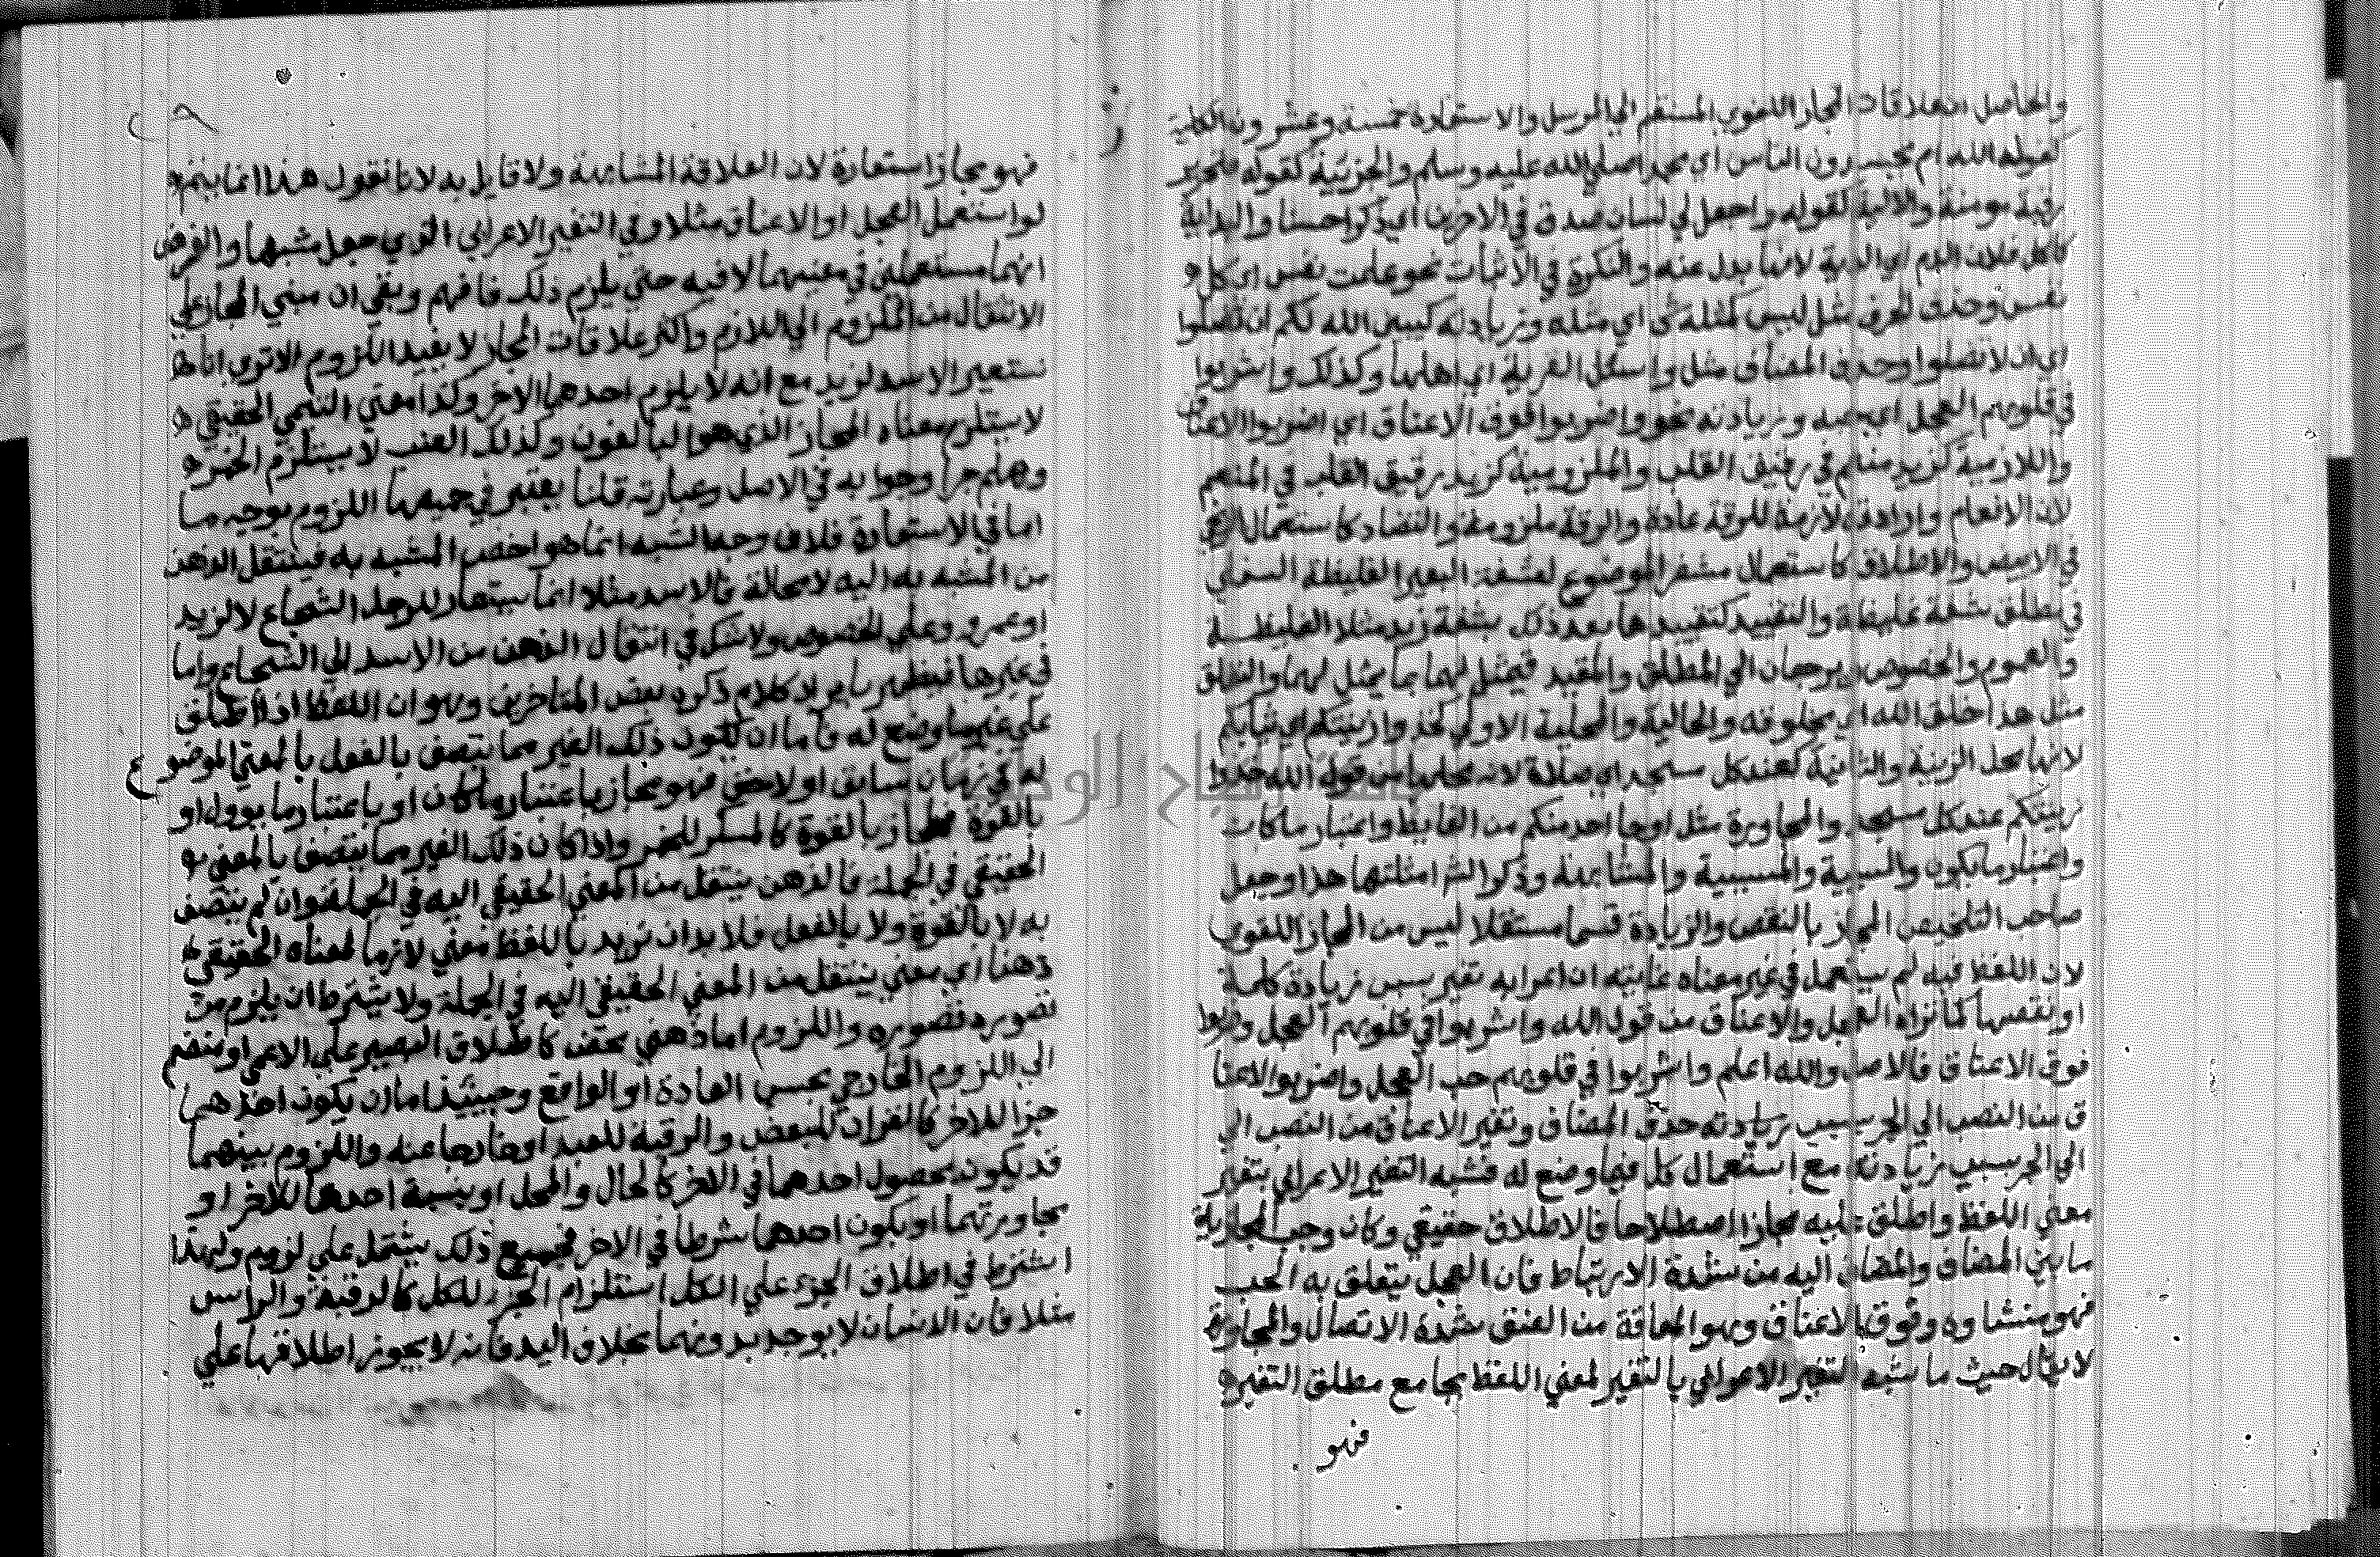 والحاصل ان علاقات المجاز اللغوي المنقسم الي المرسل والاستعارة خمسة وعشرون الكلية
كقوله الله ام يحسدون الناس اي محمدا صلي الله عليه وسلم والجزئية كقوله فتحرير
رقبة مومنة والالية كقوله واجعل لي لسان صدق في الاخرين اي ذكرا حسنا والبدلية
كاكل فلان الدم اي الدية لانها بدل عنه والنكرة في الاثبات نحو علمت نفس اي كل
نفس وحذف الحرف مثل ليس كمثله شي اي مثله وزيادته كيبين الله لكم ان تضلوا
اي ان لا تضلوا وحذف المضاف مثل واسئل القرية اي اهلها وكذلك واشربوا
في قلوبهم العجل اي حبه وزيادته نحو واضربوا فوق الاعناق اي اضربوا الاعناق
واللازمية كزيد منعم في رقيق القلب والملزومية كزيد رقيق القلب في المنعم
لان الانعام وارادته لازمة للرقة عادة والرقة ملزومة والتضاد كاستعمال
في الابيض والاطلاق كاستعمال مشفر الموضوع لشفة البعير الغليظة السفلي
في مطلق شفة غليظة والتقييد كتقييدها بعد ذلك بشفة زيد مثلا الغليظة
والعموم والخصوص ويرجعان الي المطلق والمقيد فيمثل لهما بما يمثل لهما والتعلق
مثل هذا خلق الله اي مخلوقه والحالية والمحلية الاولي خذوا زينتكم اي ثيابكم
لانها محل الزينة والثانية كعند كل مسجد اي صلاة لانه محلها من قوله الله خذوا
زينتكم عند كل مسجد والمجاورة مثل او جا احد منكم من الغايط واعتبار ما كان
واعتبار ما يكون والسببية والمسببية والمشابهة وذكروا اكثر امثلتها هذا وجعل
صاحب التلخيص المجاز بالنقص والزيادة قسما مستقلا ليس من المجاز اللغوي
لان اللفظ فيه لم يستعمل في غير معناه غايته ان اعرابه تغير بسبب زيادة كلمة
او نقصها كما نراه العجل والاعناق من قول الله واشربوا في قلوبهم العجل واضربوا
فوق الاعناق فالاصل والله اعلم واشربوا في قلوبهم حب العجل واضربوا الاعنا
ق من النصب الي الجر بسبب زيادته حذف المضاف وتغير الاعناق من النصب الي
الي الجر بسبب زيادته مع استعمال كل فيما وضع له فشبه التغير الاعرابي بتغير
معني اللفظ واطلق عليه مجازا اصطلاحا فالاطلاق حقيقي وكان وجه المجازية
ما بين المضاف والمضاف اليه من شدة الارتباط فان العجل يتعلق به الحب
فهو منشاوه وفوق الاعناق وهو المعاقة من العنق شدة الاتصال والمجاورة
لا يقال حيث ما شبه التغير الاعرابي بالتغير لمعني اللفظ بجامع مطلق التغير
فهو
فهو مجاز استعارة لان العلاقة المشابهة ولا قايل به لانا نقول هذا انما يتم
لو استعمل العجل او الاعناق مثلا وفي التغير الاعرابي الذي جعل مشبها والفرض
انهما مستعملان في معنيهما لا فيه حتي يلزم ذلك فافهم وبقي ان مبني المجاز علي
الانتقال من الملزوم الي اللازم واكثر علاقات المجاز لا يفيد اللزوم الا تري انا
نستعير الاسد لزيد مع انه لا يلزم احدهما الاخر وكذا معني اليتمي الحقيقي
لا يستلزم معناه المجاز الذي هو البالغون وكذلك العنب لا يستلزم الخمر
وهلم جرا وجوابه في الاصل وعبارته قلنا يعتبر في جميعها اللزوم بوجه ما
اما في الاستعارة فلان وجه الشبه انما هو اخص المشبه به فينتقل الذهن
من المشبه به اليه لا محالة فالاسد مثلا انما يستعار للرجل الشجاع لا لزيد
او عمرو وعلي الخصوص ولا شك في انتقال الذهن من الاسد الي الشجاع واما
في غيرها فيظهر بايراد كلام ذكره بعض المتاخرين وهو ان اللفظ اذا اطلق
علي غير ما وضع له فاما ان يكون ذلك الغير مما يتصف بالفعل بالمعني الموضوع
له في زمان سابق او لاحق فهو مجاز باعتبار ما كان او باعتبار ما يوول او
بالقوة فمجاز بالقوة كالمسكر للخمر واذا كان ذلك الغير مما يتصف بالمعني
الحقيقي في الجملة فالذهن ينتقل من المعني الحقيقي اليه في الجملة وان لم يتصف
به لا بالقوة ولا بالفعل فلا بد ان نريد باللفظ معني لازما لمعناه الحقيقي
ذهنا اي معني ينتقل من المعني الحقيقي اليه في الجملة ولا يشترط ان يلزم من
تصوره تصوره واللزوم اما ذهني محض كاطلاق البصير علي الاعمي او منضم
الي اللزوم الخارجي بحسب العادة او الواقع وحينئذ اما ان يكون احدهما
جزا للاخر كالقران للبعض والرقبة للعبد او خارجا عنه واللزوم بينهما
قد يكون بحصول احدهما في الاخر كالحال والمحل او بنسبة احدهما للاخر او
مجاورتهما او يكون احدهما شرطا في الاخر فجميع ذلك يشتمل علي لزوم ولهذا
اشترط في اطلاق الجزء علي الكل استلزام الجزء للكل كالرقبة والراس
مثلا فان الانسان لا يوجد بدونهما بخلاف اليد فانه لا يجوز اطلاقها علي